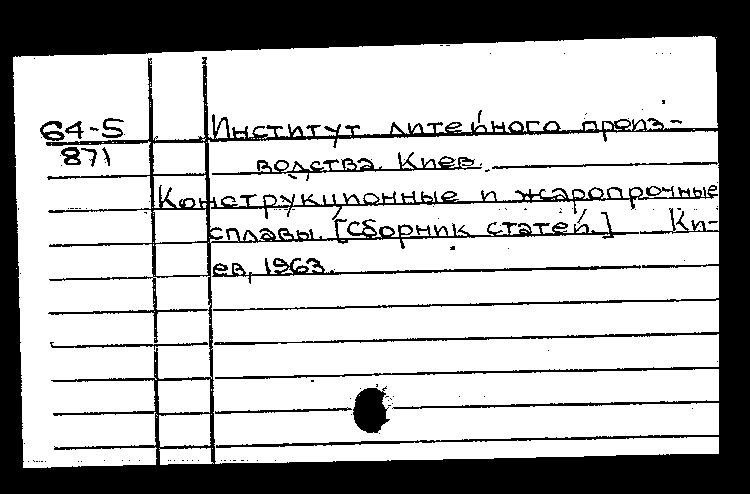 64-5 Институт литейного произ-
871 водства. Киев.
Конструкционные и жаропрочные
сплавы. [Сборник статей.] Ки-
ев, 1963.